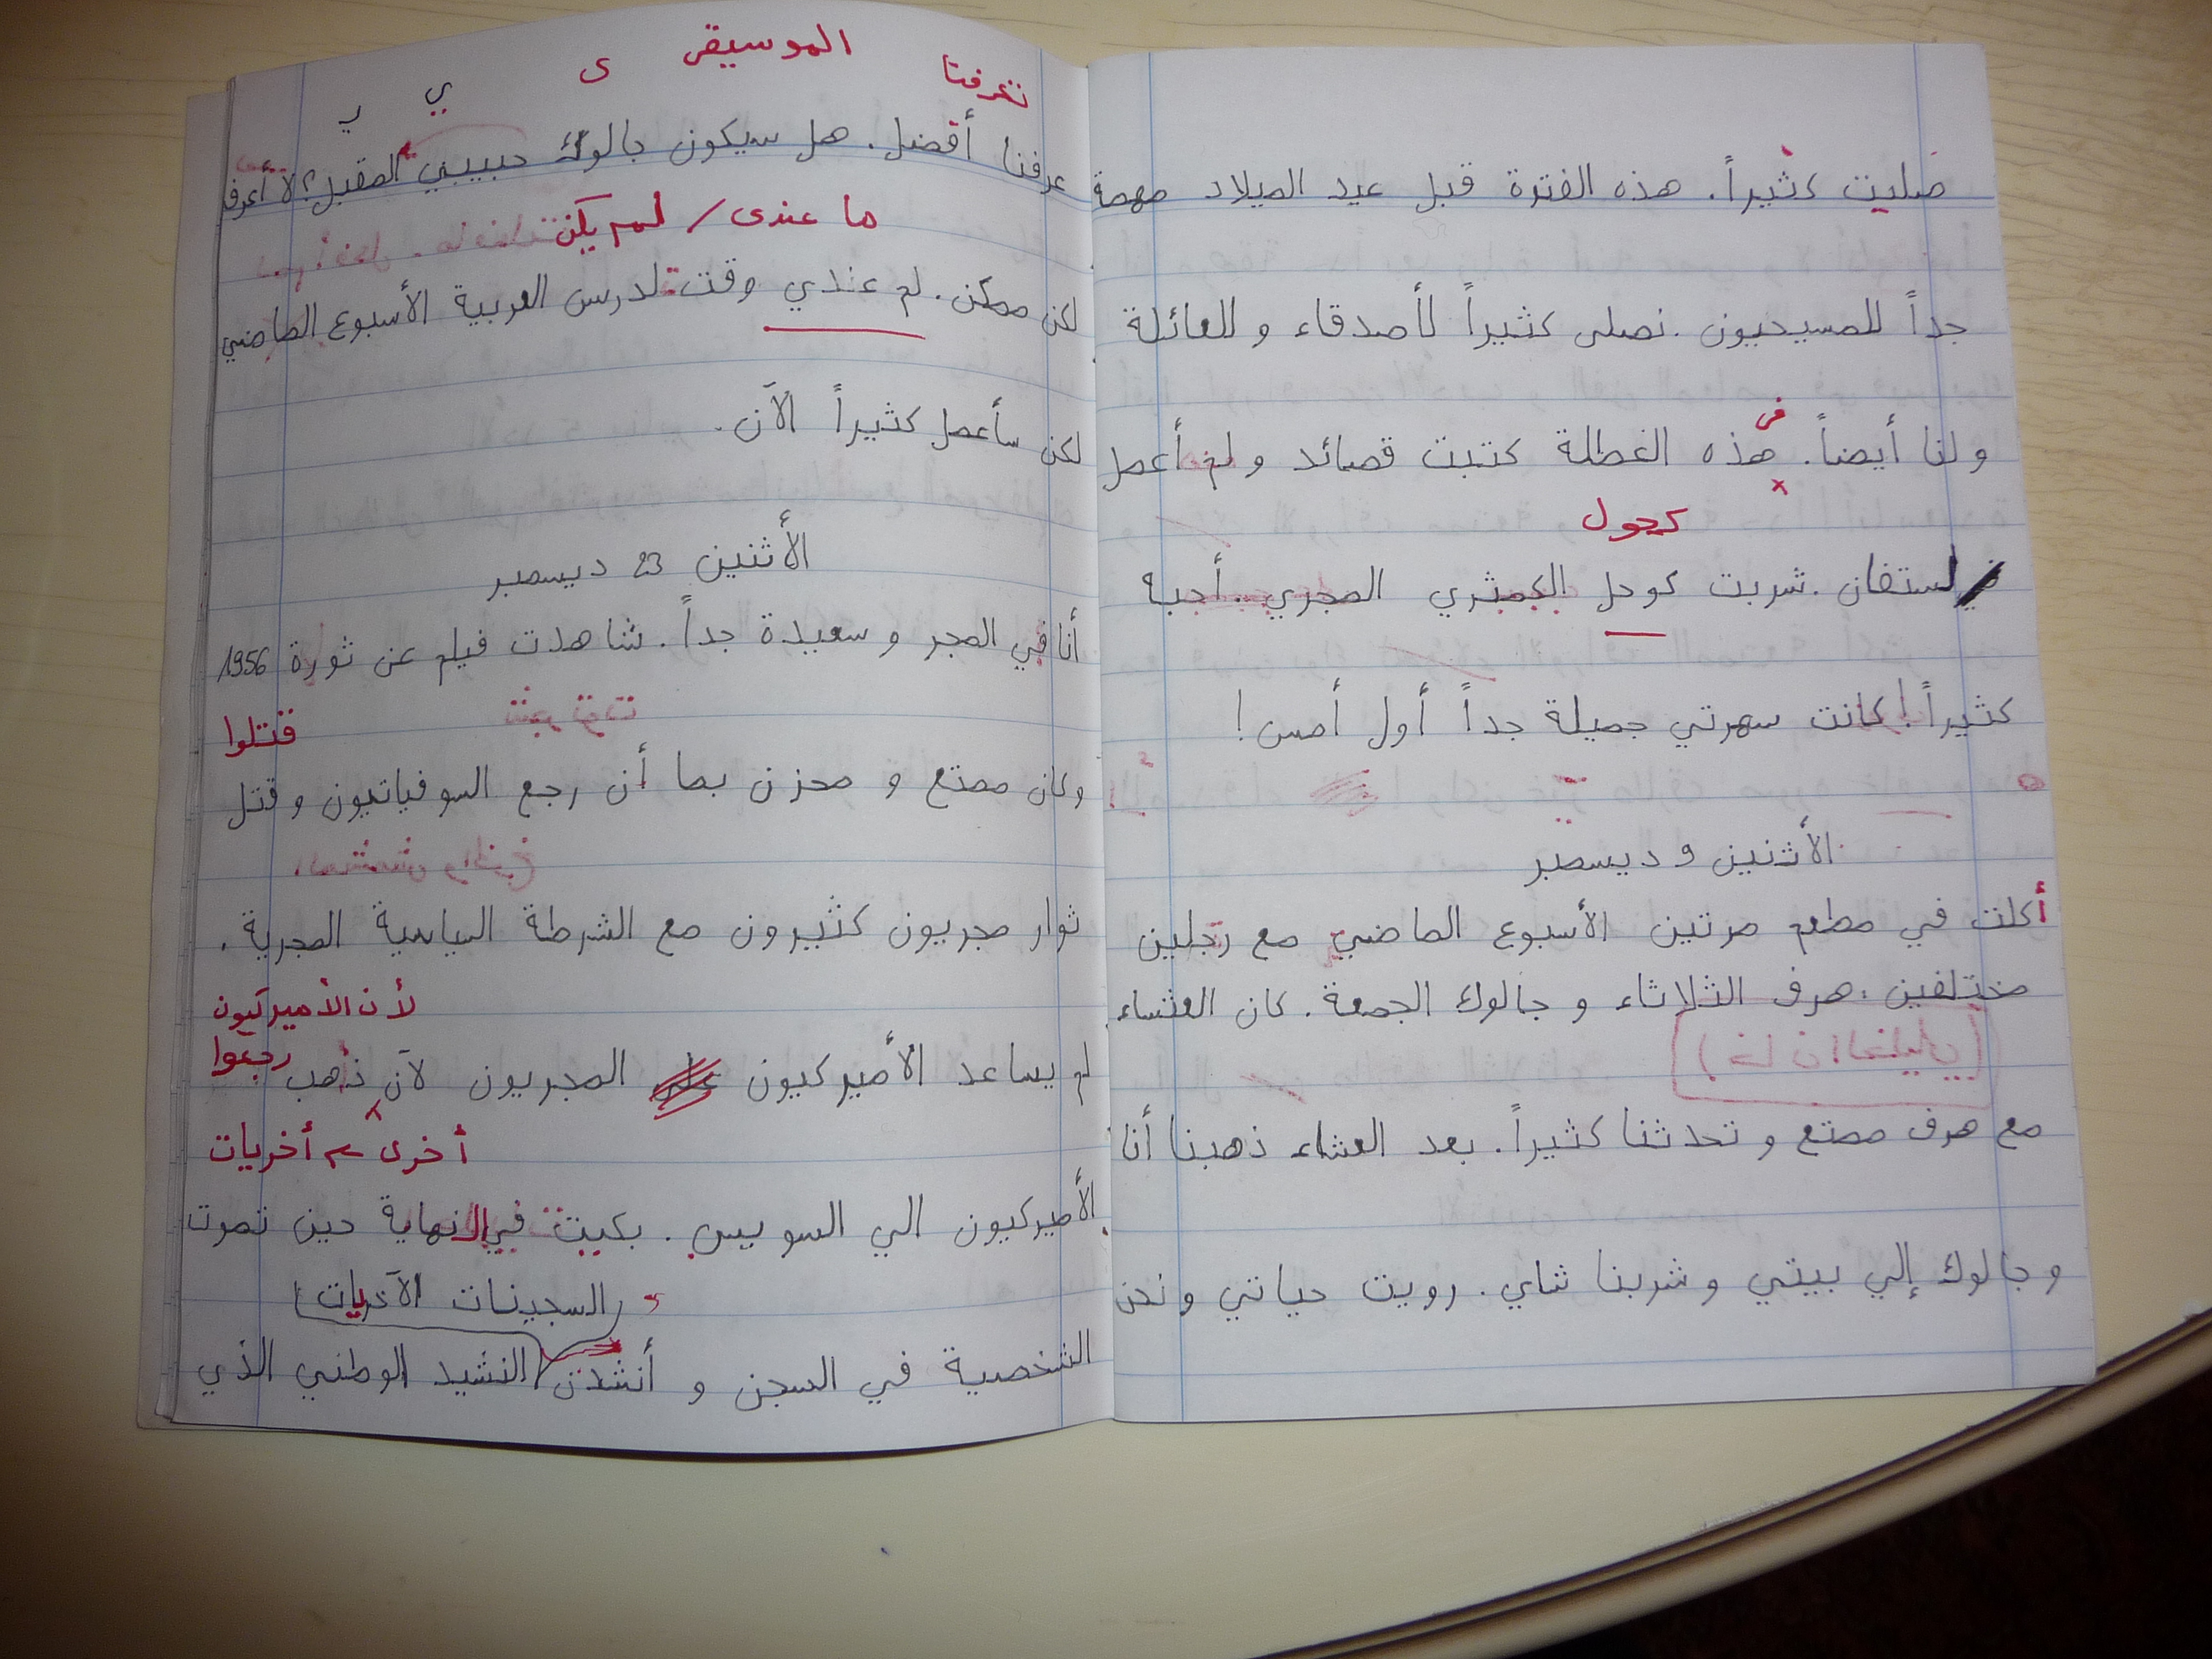 صليت كثيراً. هذه الفترة قبل عيد الميلاد مهمة
جداً للمسيحيون. نصلى كثيراً لأصدقاء و للعائلة
فى
ولنا أيضاً. هذه العطلة كتبت قصائد ولم أعمل
كحول
لستفان. شربت كوحل الكمثري المجري. أحبه
كثيراً! كانت سهرتي جميلة جداً أول أمس!
الأثنين 9 ديسمبر
أكلت في مطعم مرتين الأسبوع الماضي مع رجلين
مختلفين: هرف الثلاثاء و جالوك الجمعة. كان العشاء
مع هرف ممتع و تحدثنا كثيراً. بعد العشاء ذهبنا أنا
و جالوك إلي بيتي و شربنا شاي. رويت حياتي ونحن
الموسيقى ى ي
تعرفنا
عرفنا أفضل. هل سيكون جالوك حبيبي المقبل؟ لا أعرف
ما عندى / لم يكن
لكن ممكن. لم عندي وقت لدرس العربية الأسبوع الماضي
لكن سأعمل كثيراً الآن.
الأثنين 23 ديسمبر
أنا في المجر و سعيدة جداً. شاهدت فيلم عن ثورة 1956
قتلوا
وكان ممتع و محزن بما أن رجع السوفياتيون و قتل
ثوار مجريون كثيرون مع الشرطة السياسية المجرية.
لأن الأميركيون
رجعوا
لم يساعد الأميركيون المجريون لآن ذهب
أخرى ← أخريات
الأميركيون الي السويس. بكيت في النهاية حين تموت
السجينات الآخريات
الشخصية في السجن و أنشدن النشيد الوطني الذي